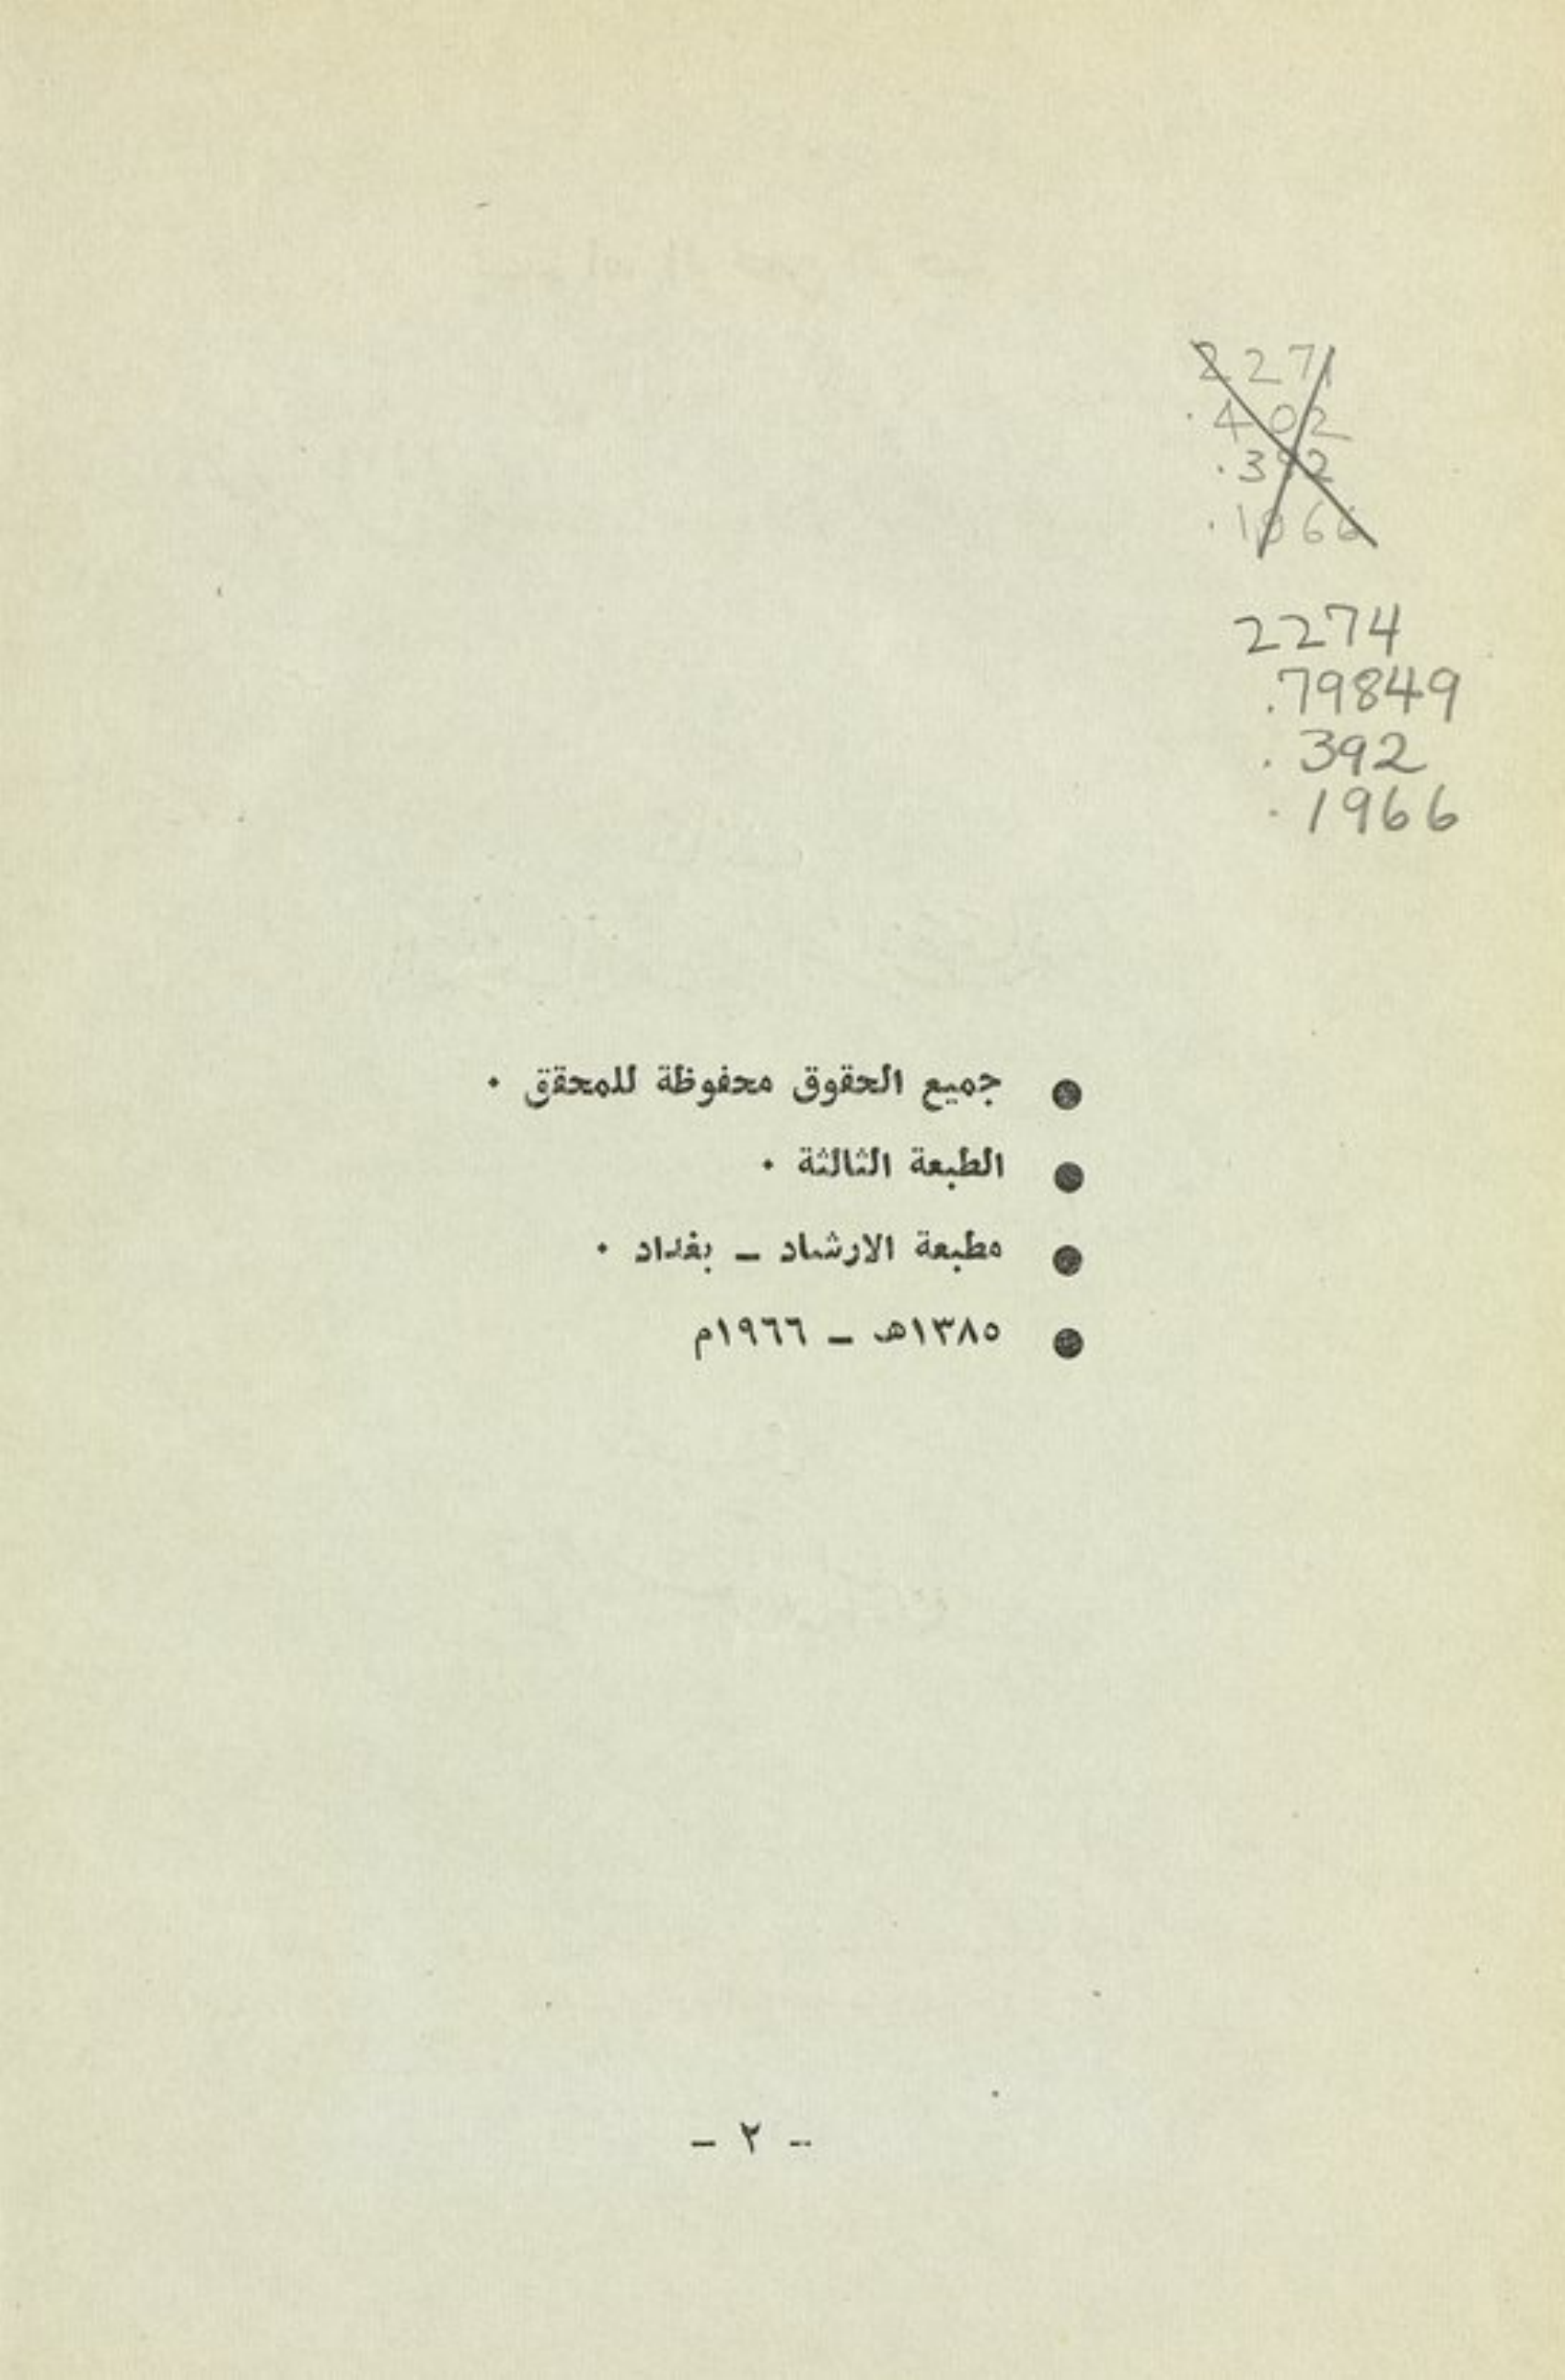 2271
.402
.392
.1966
2274
.79849
.392
.1966
● جميع الحقوق محفوظة للمحقق ٠
● الطبعة الثالثة ٠
● مطبعة الارشاد ـ بغداد ٠
● ١٣٨٥هـ ـ ١٩٦٦م
- ٢ -